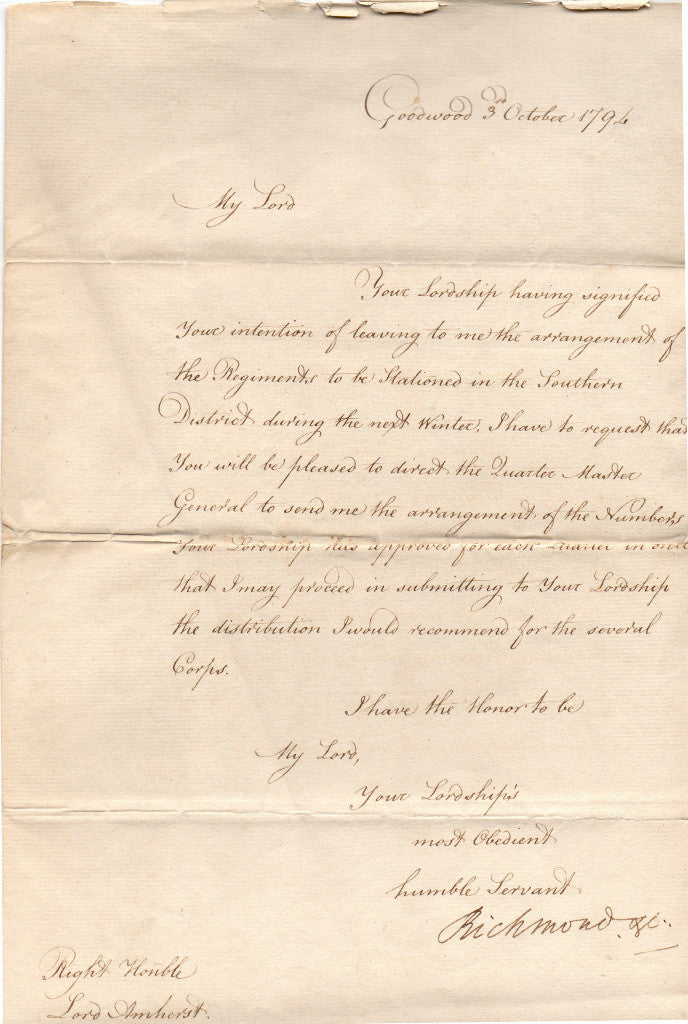 Goodwood 3rd October 1794
My Lord
Your Lordship having signified
Your intention of leaving to me the arrangement of
the Regiments to be Stationed in the Southern
District during the next Winter, I have to request that
You will be pleased to direct the Quarter Master
General to send me the arrangement of the Numbers
Your Lordship has approved for each Quarter in order
that I may proceed in submitting to Your Lordship
the distribution I would recommend for the several
Corps.
I have the Honor to be
My Lord,
Your Lordship's
most Obedient
humble Servant
Richmond &c.
Right Honble
Lord Amherst.